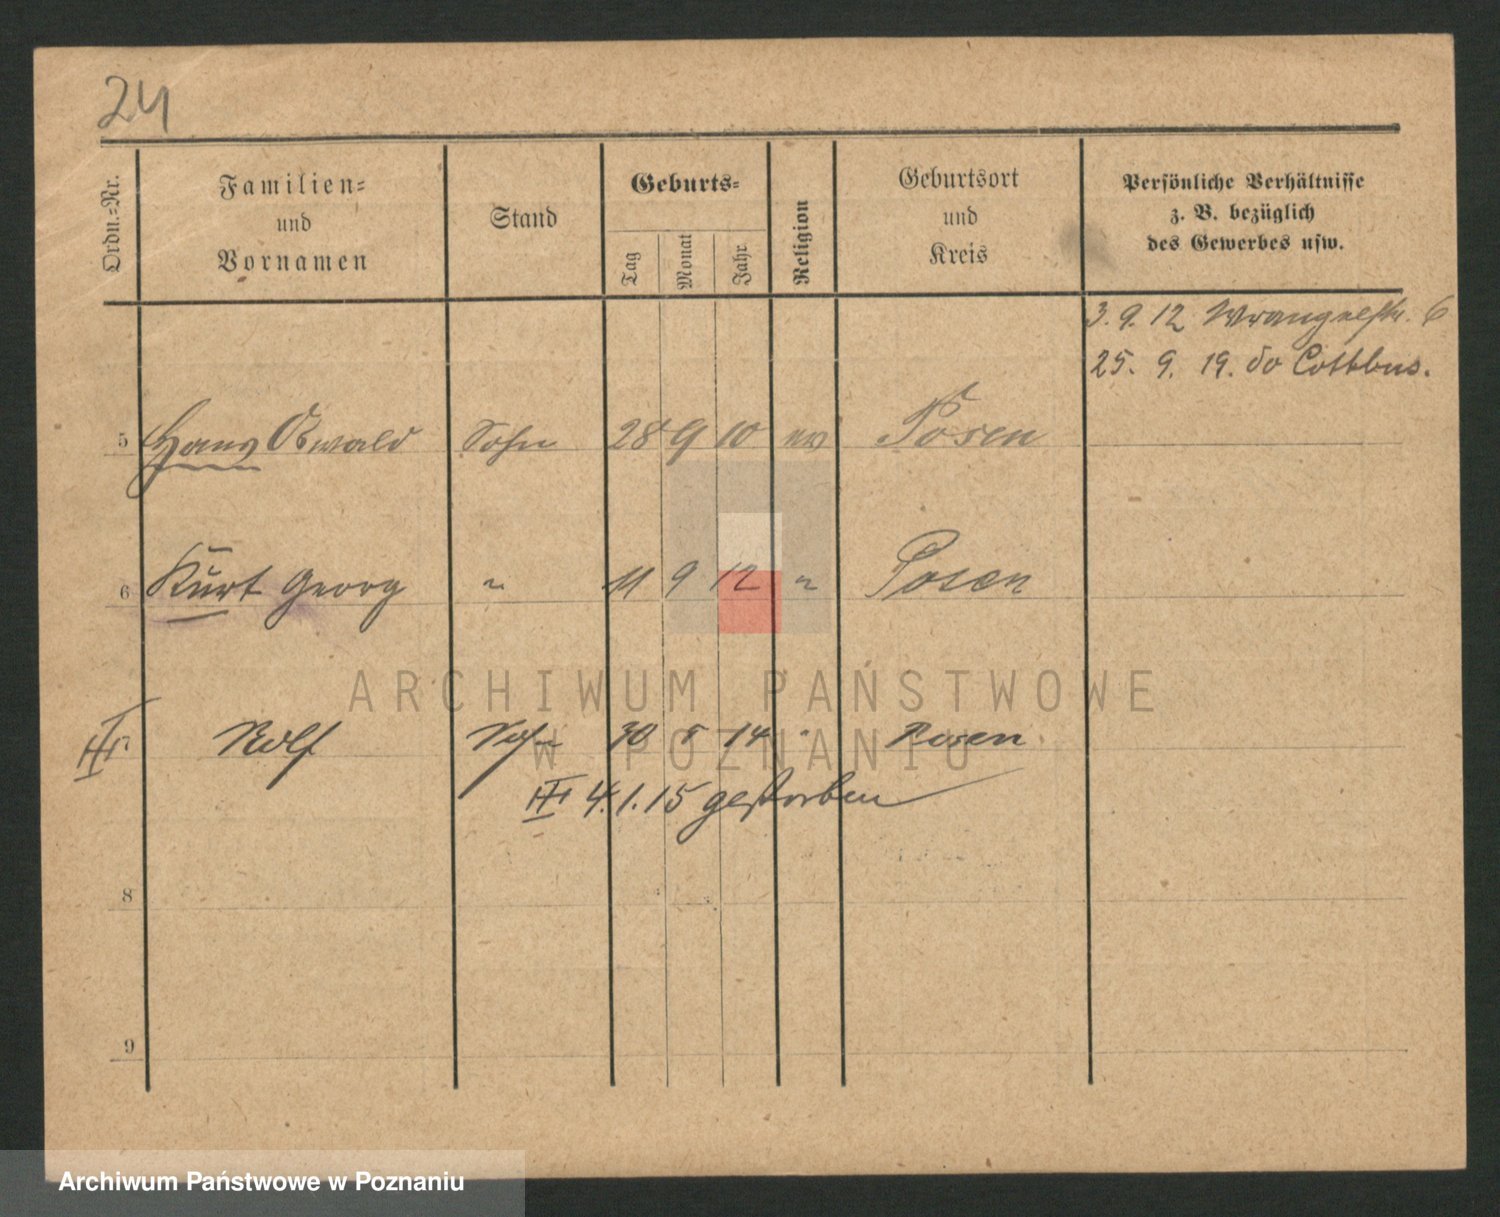 24
Ordn.-Nr.
Familien-
und
Vornamen
Stand
Geburts-
Tag
Monat
Jahr
Religion
Geburtsort
und
Kreis
Persönliche Verhältnisse
z. B. bezüglich
des Gewerbes usw.
3. 9. 12 Wrangelstr. 6
25. 9. 19. do Cottbus.
5 Hans Oswald Sohn 28 9 10 ev Posen
6 Kurt Georg " 11 9 12 " Posen
III 7 Rolf Sohn 30 5 14 " Posen
III 4.1.15 gestorben
8
9
ARCHIWUM PAŃSTWOWE
W POZNANIU
Archiwum Państwowe w Poznaniu